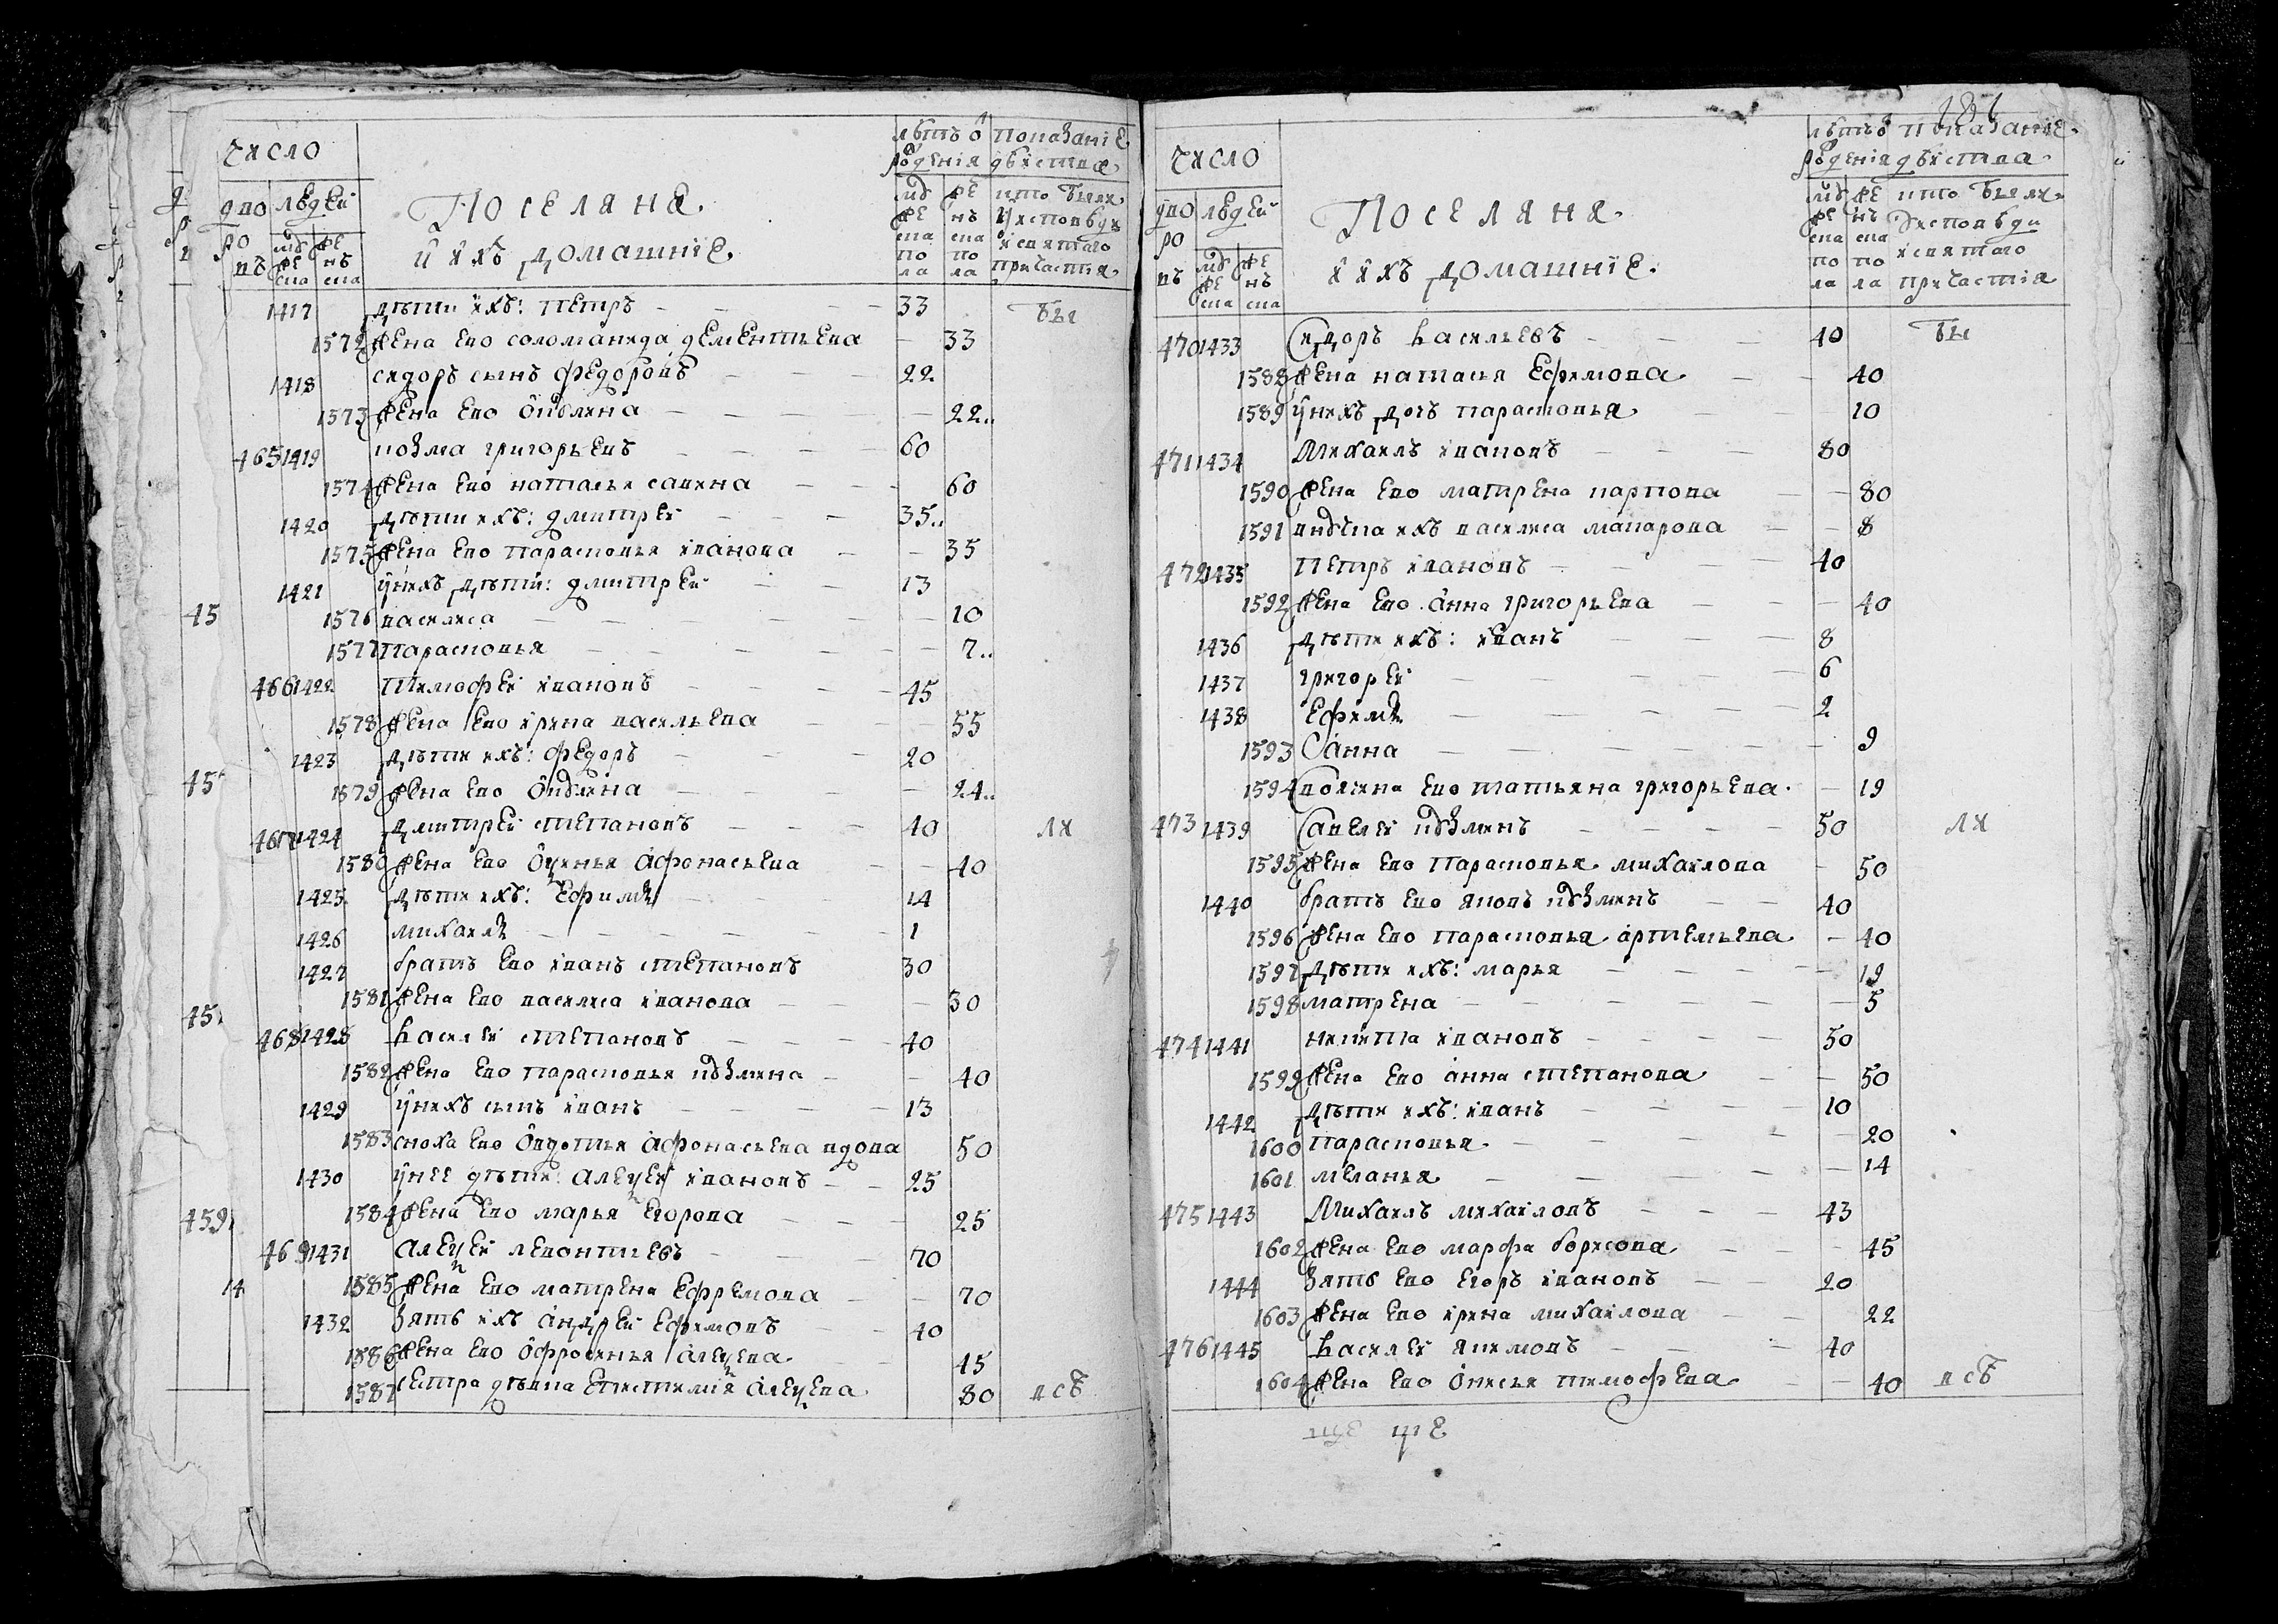 число
лѣтъ ѿ рождения
показание действа
дворовъ
людей
мужеска
женска
Поселяна
и ихъ домашние
мужеска пола
женска пола
кто были у исповеди и святаго причастия
1417 дѣти ихъ: Петръ 33 бы
1572 жена ево соломанида дементьева 33
1418 сидоръ сынъ федоровъ 22
1573 жена ево ѹкулина 22
465 1419 козма григорьевъ 60
1574 жена ево наталья савина 60
1420 дѣти ихъ: дмитрей 35
1575 жена ево парасковья иванова 35
1421 у нихъ дѣти: дмитрей 13
1576 василиса 10
1577 парасковья 7
466 1422 Тимофей ивановъ 45
1578 жена ево ирина васильева 55
1423 дѣти ихъ: федоръ 20
1579 жена ево 24
467 1424 дмитрей степановъ 40 ли
1580 жена ево афонасьева 40
1425 дѣти ихъ: ефимъ 14
1426 михаилъ 1
1427 братъ ево иванъ степановъ 30
1581 жена ево василиса иванова 30
468 1428 василей степановъ 40
1582 жена ево парасковья кузмина 40
1429 у нихъ сынъ иванъ 13
1583 сноха ево овдотья афонасьева вдова 50
1430 у нее дѣти: алексей ивановъ 25
1584 жена ево марья егорова 25
469 1431 алексей левонтиевъ 70
1585 жена ево матрена ефремова 70
1432 зять ихъ андрей ефимовъ 40
1586 жена ево офросинья алексева 45
1587 сестра девка епистимия алексева 80 всѣ
45
45
45
459
14
181
число
лѣтъ ѿ рождения
показание действа
дворовъ
людей
мужеска
женска
Поселяня
и ихъ домашние
мужеска пола
женска пола
кто были у исповеди и святаго причастия
470 1433 сидоръ васильевъ 40 бы
1588 жена наталья ефимова 40
1589 у нихъ дочь парасковья 10
471 1434 михаилъ ивановъ 80
1590 жена ево матрена карпова 80
1591 внучка ихъ василиса макарова 8
472 1435 петръ ивановъ 40
1592 жена ево анна григорьева 40
1436 дѣти ихъ: иванъ 8
1437 григорей 6
1438 ефимъ 2
1593 анна 9
1594 татьяна григорьева 19
473 1439 савелей кузминъ 50 ли
1595 жена ево парасковья михаилова 50
1440 братъ ево яковъ кузминъ 40
1596 жена ево парасковья артемьева 40
1597 дѣти ихъ: марья 19
1598 матрена 5
474 1441 никита ивановъ 50
1599 жена ево анна степанова 50
1442 дѣти ихъ: иванъ 10
1600 парасковья 20
1601 меланья 14
475 1443 михаилъ михаиловъ 43
1602 жена ево марфа борисова 45
1444 зять ево егоръ ивановъ 20
1603 жена ево ирина михаилова 22
476 1445 василей якимовъ 40
1604 жена ево онисья тимофева 40 всѣ